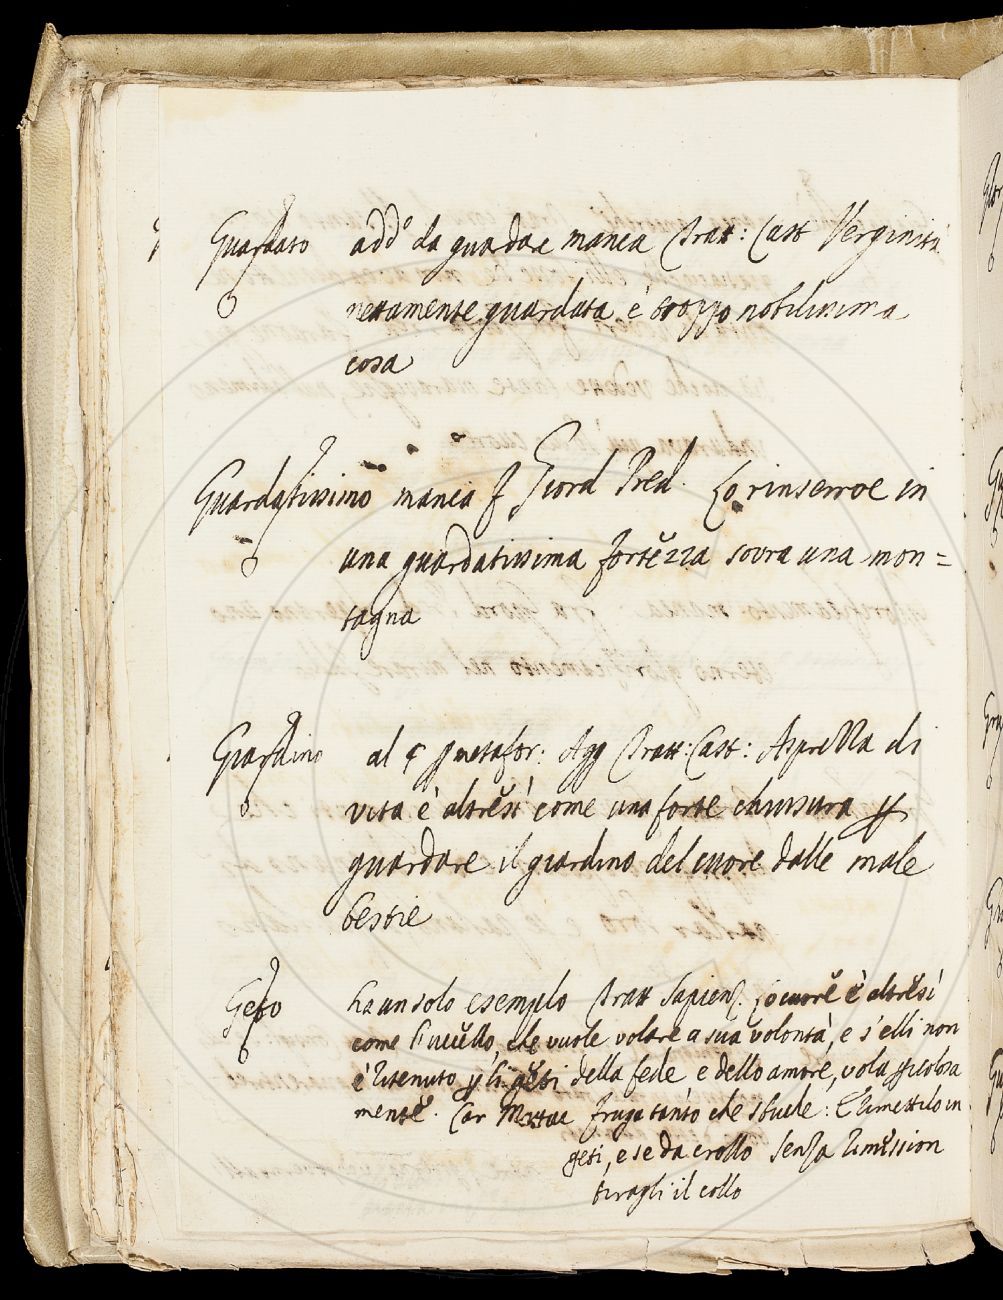 Guardato add.º da guardare manca Tratt: Cast Verginità
nettamente guardata è troppo nobilissima
cosa
Guardatissimo manca f Giord Pred. Lo rinserroe in
una guardatissima fortezza sovra una mon=
tagna
Giardino al § metafor: Agg Tratt: Cast: Asprezza di
vita è altresì come una forte chiusura p
guardare il giardino del cuore dalle male
bestie
Geto ha un solo esempio Tratt Sapienz. Lo cuore è altresì
come l'uccello, che vuole volare a sua volontà, e s'elli non
è ritenuto p li geti della fede e dello amore, vola pericolosa
mente. Car Mattac fruga tanto che sbuche: E rimettilo in
geti, e se da crollo senza rimession
tiragli il collo